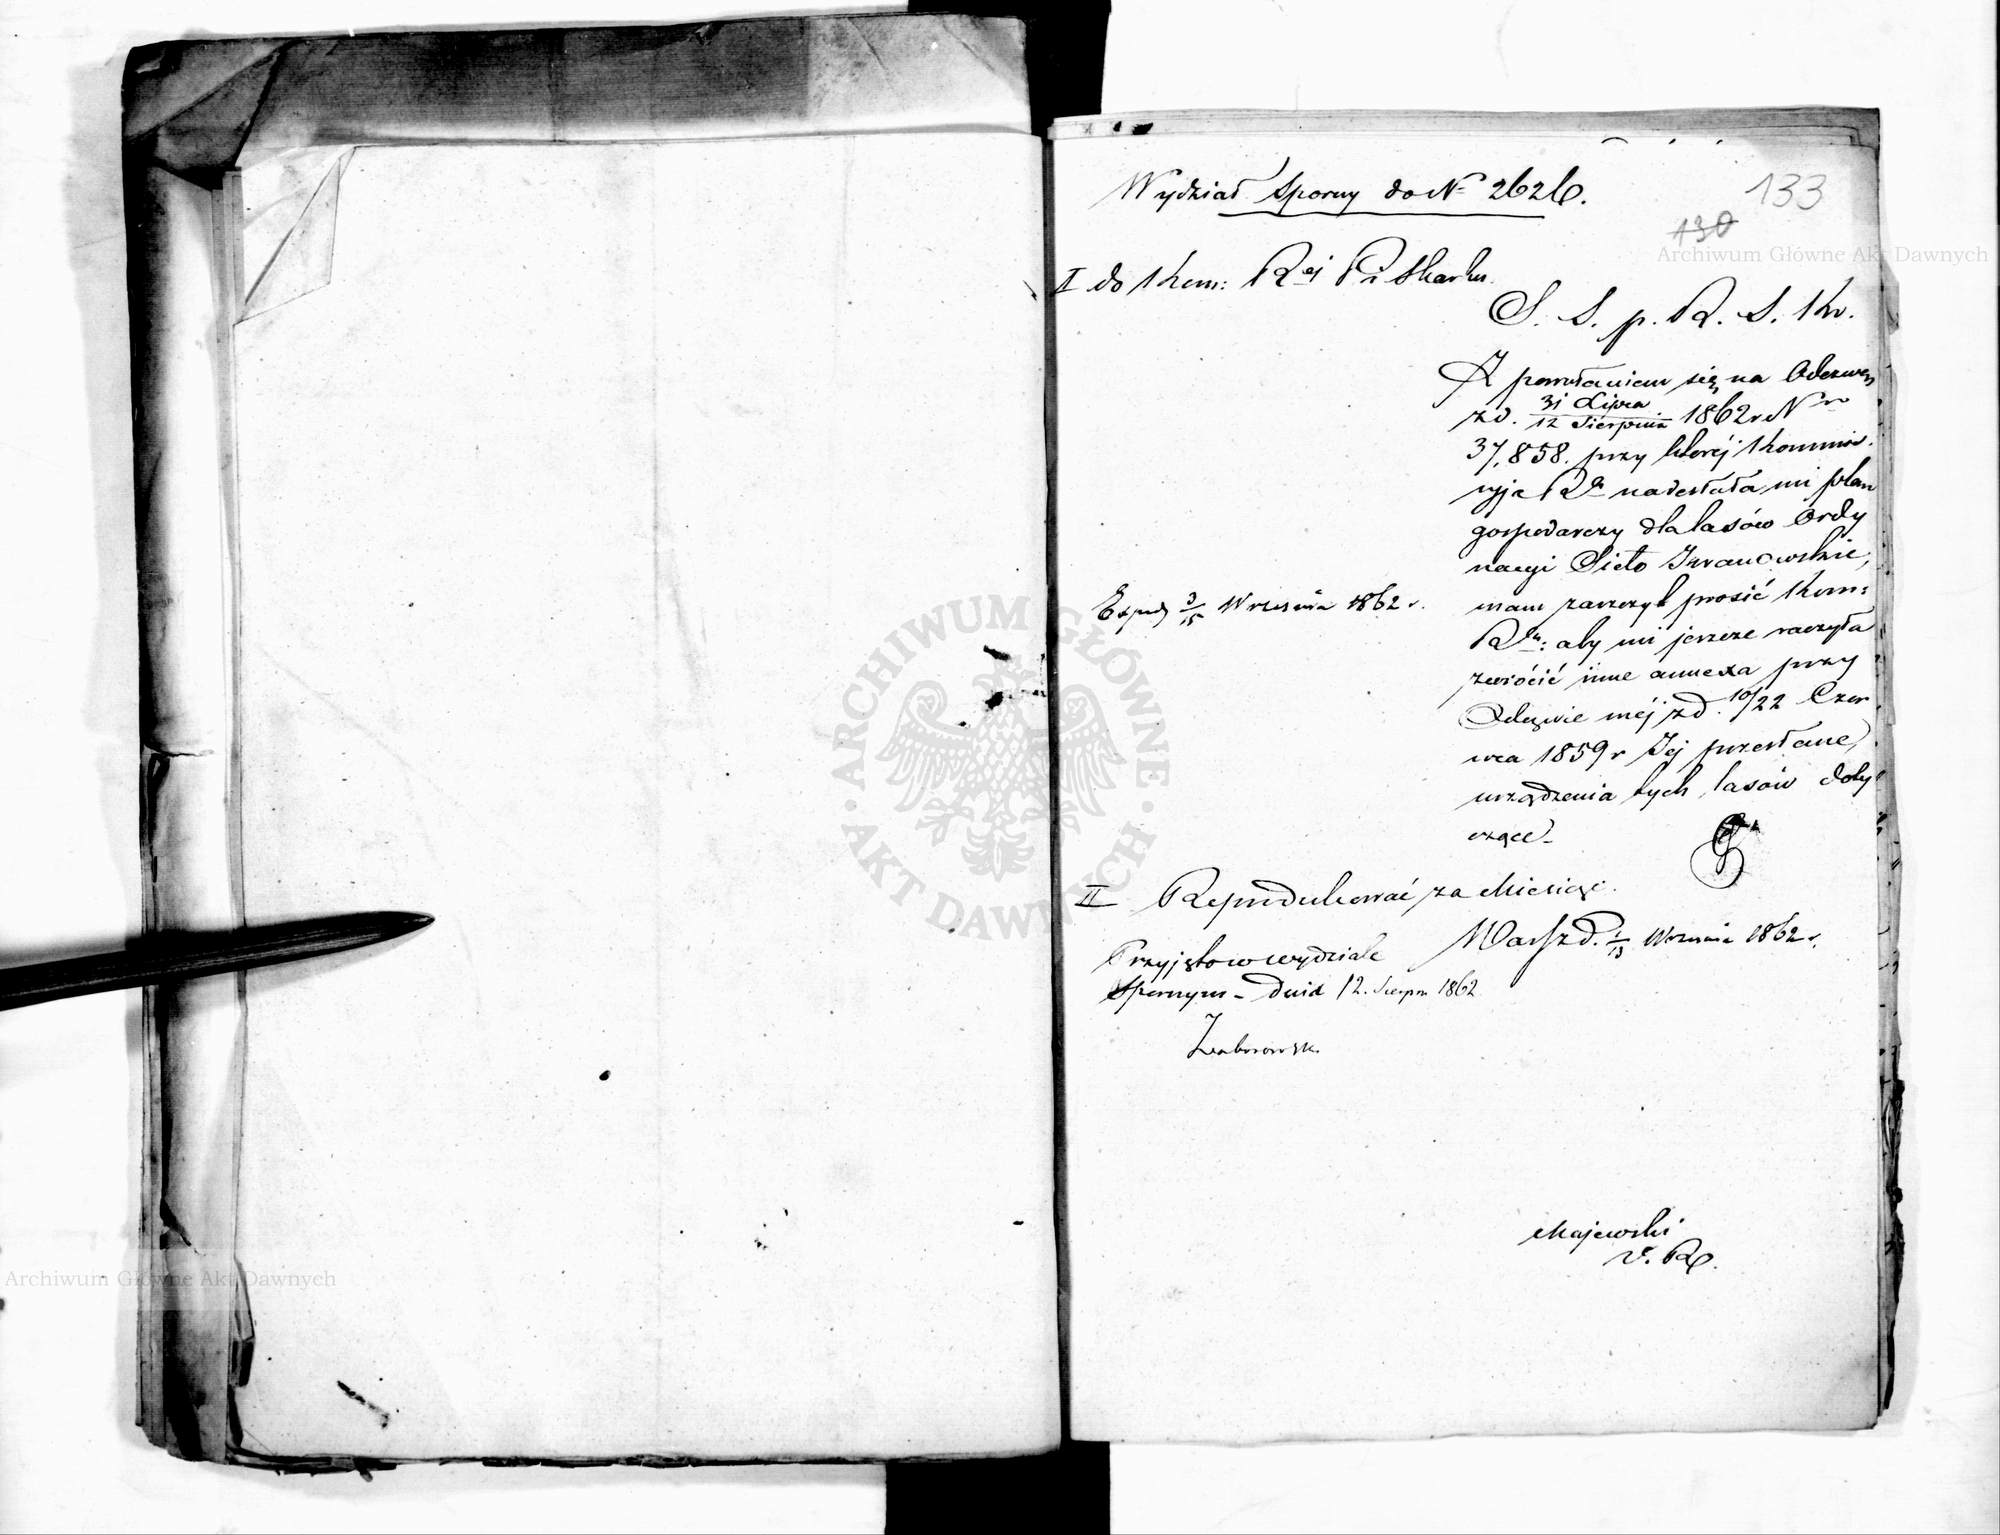 Wydział Sporny do N 2626.
133
130
I do Kom: R_ej P i Skarbu.
S. S. p. R. S. Kr.
Z powołaniem się na Odezwę
z d. 31 Lipca / 12 Sierpnia 1862 r N
37,858. przy której Kommis
syja R nadesłała mi plan
gospodarczy dla lasów Ordy
nacyi Sieto Iwanowskie,
mam zaszczyt prosić Kom:
R: aby mi jeszcze raczyła
zwrócić inne annexa przy
Odezwie mej z d. 10/22 Czer
wca 1859 r Jej przesłane,
urządzenia tych lasów doty
czące.
Exped 3/15 Września 1862 r.
II Reprodukować za Miesiąc.
Warsz d. 1/13 Września 1862 r.
Przyjęto w wydziale
Spornym - dnia 12. Sierpn 1862
Zaborowski
Majewski
v. R.
Archiwum Główne Akt Dawnych
ARCHIWUM GŁÓWNE AKT DAWNYCH
Archiwum Główne Akt Dawnych